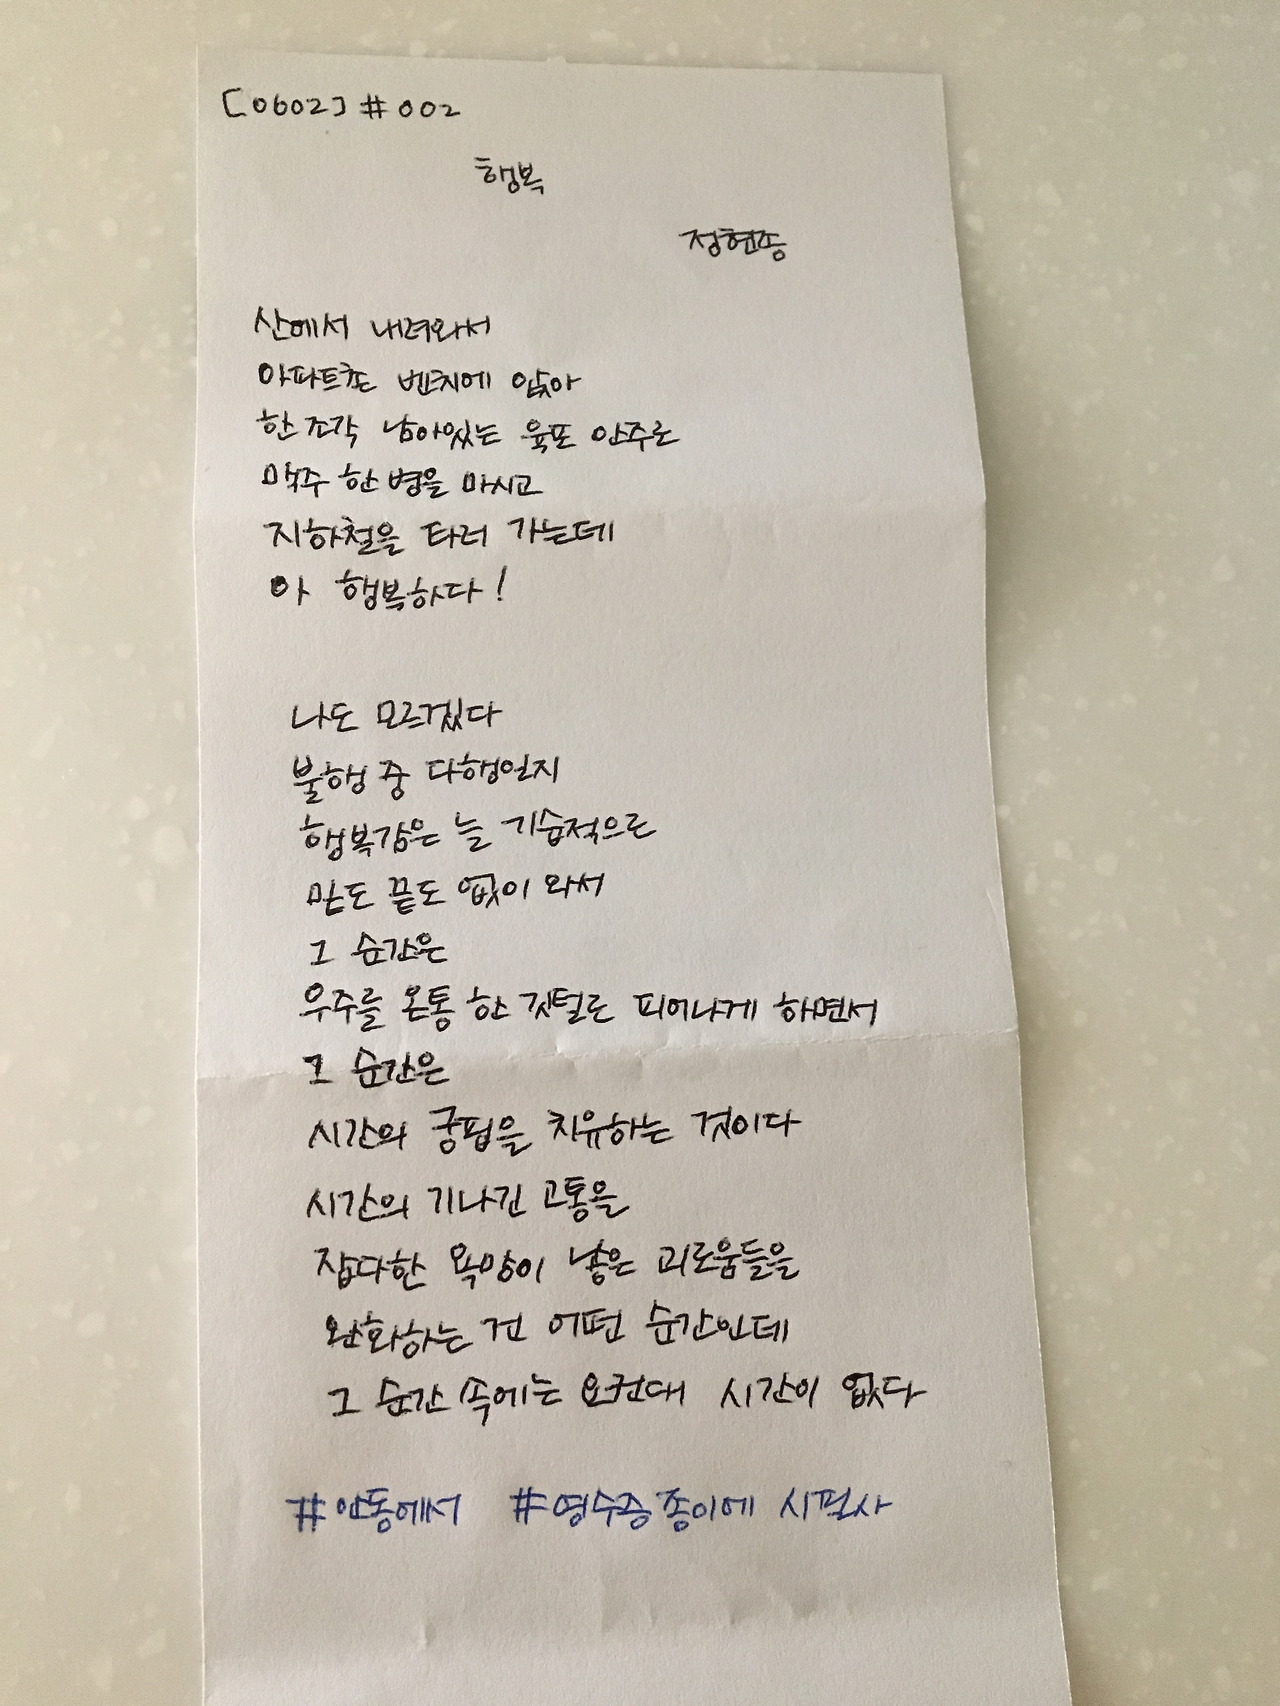 [0602] #002
행복
정현종
산에서 내려와서
아파트촌 벤치에 앉아
한 조각 남아있는 육포 안주로
맥주 한 병을 마시고
지하철을 타러 가는데
아 행복하다!
나도 모르겠다
불행 중 다행일지
행복감은 늘 기습적으로
밑도 끝도 없이 와서
그 순간은
우주를 온통 한 깃털로 피어나게 하면서
그 순간은
시간의 궁핍을 치유하는 것이다
시간의 기나긴 고통을
잡다한 욕망이 낳은 괴로움들을
완화하는 건 어떤 순간인데
그 순간 속에는 요컨대 시간이 없다
#안동에서 #영수증 종이에 시필사